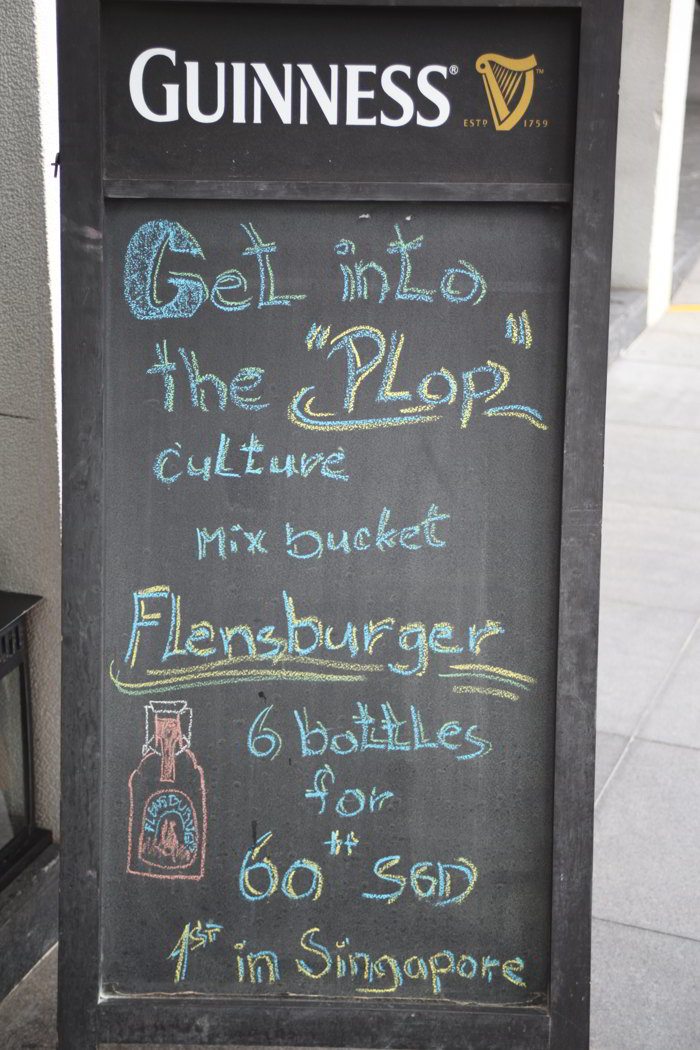 GUINNESS®
ESTD 1759 ™
Get into
the "PLop"
culture
Mix bucket
Flensburger
6 bottles
for
60++ SGD
1st in Singapore
FLENSBURGER